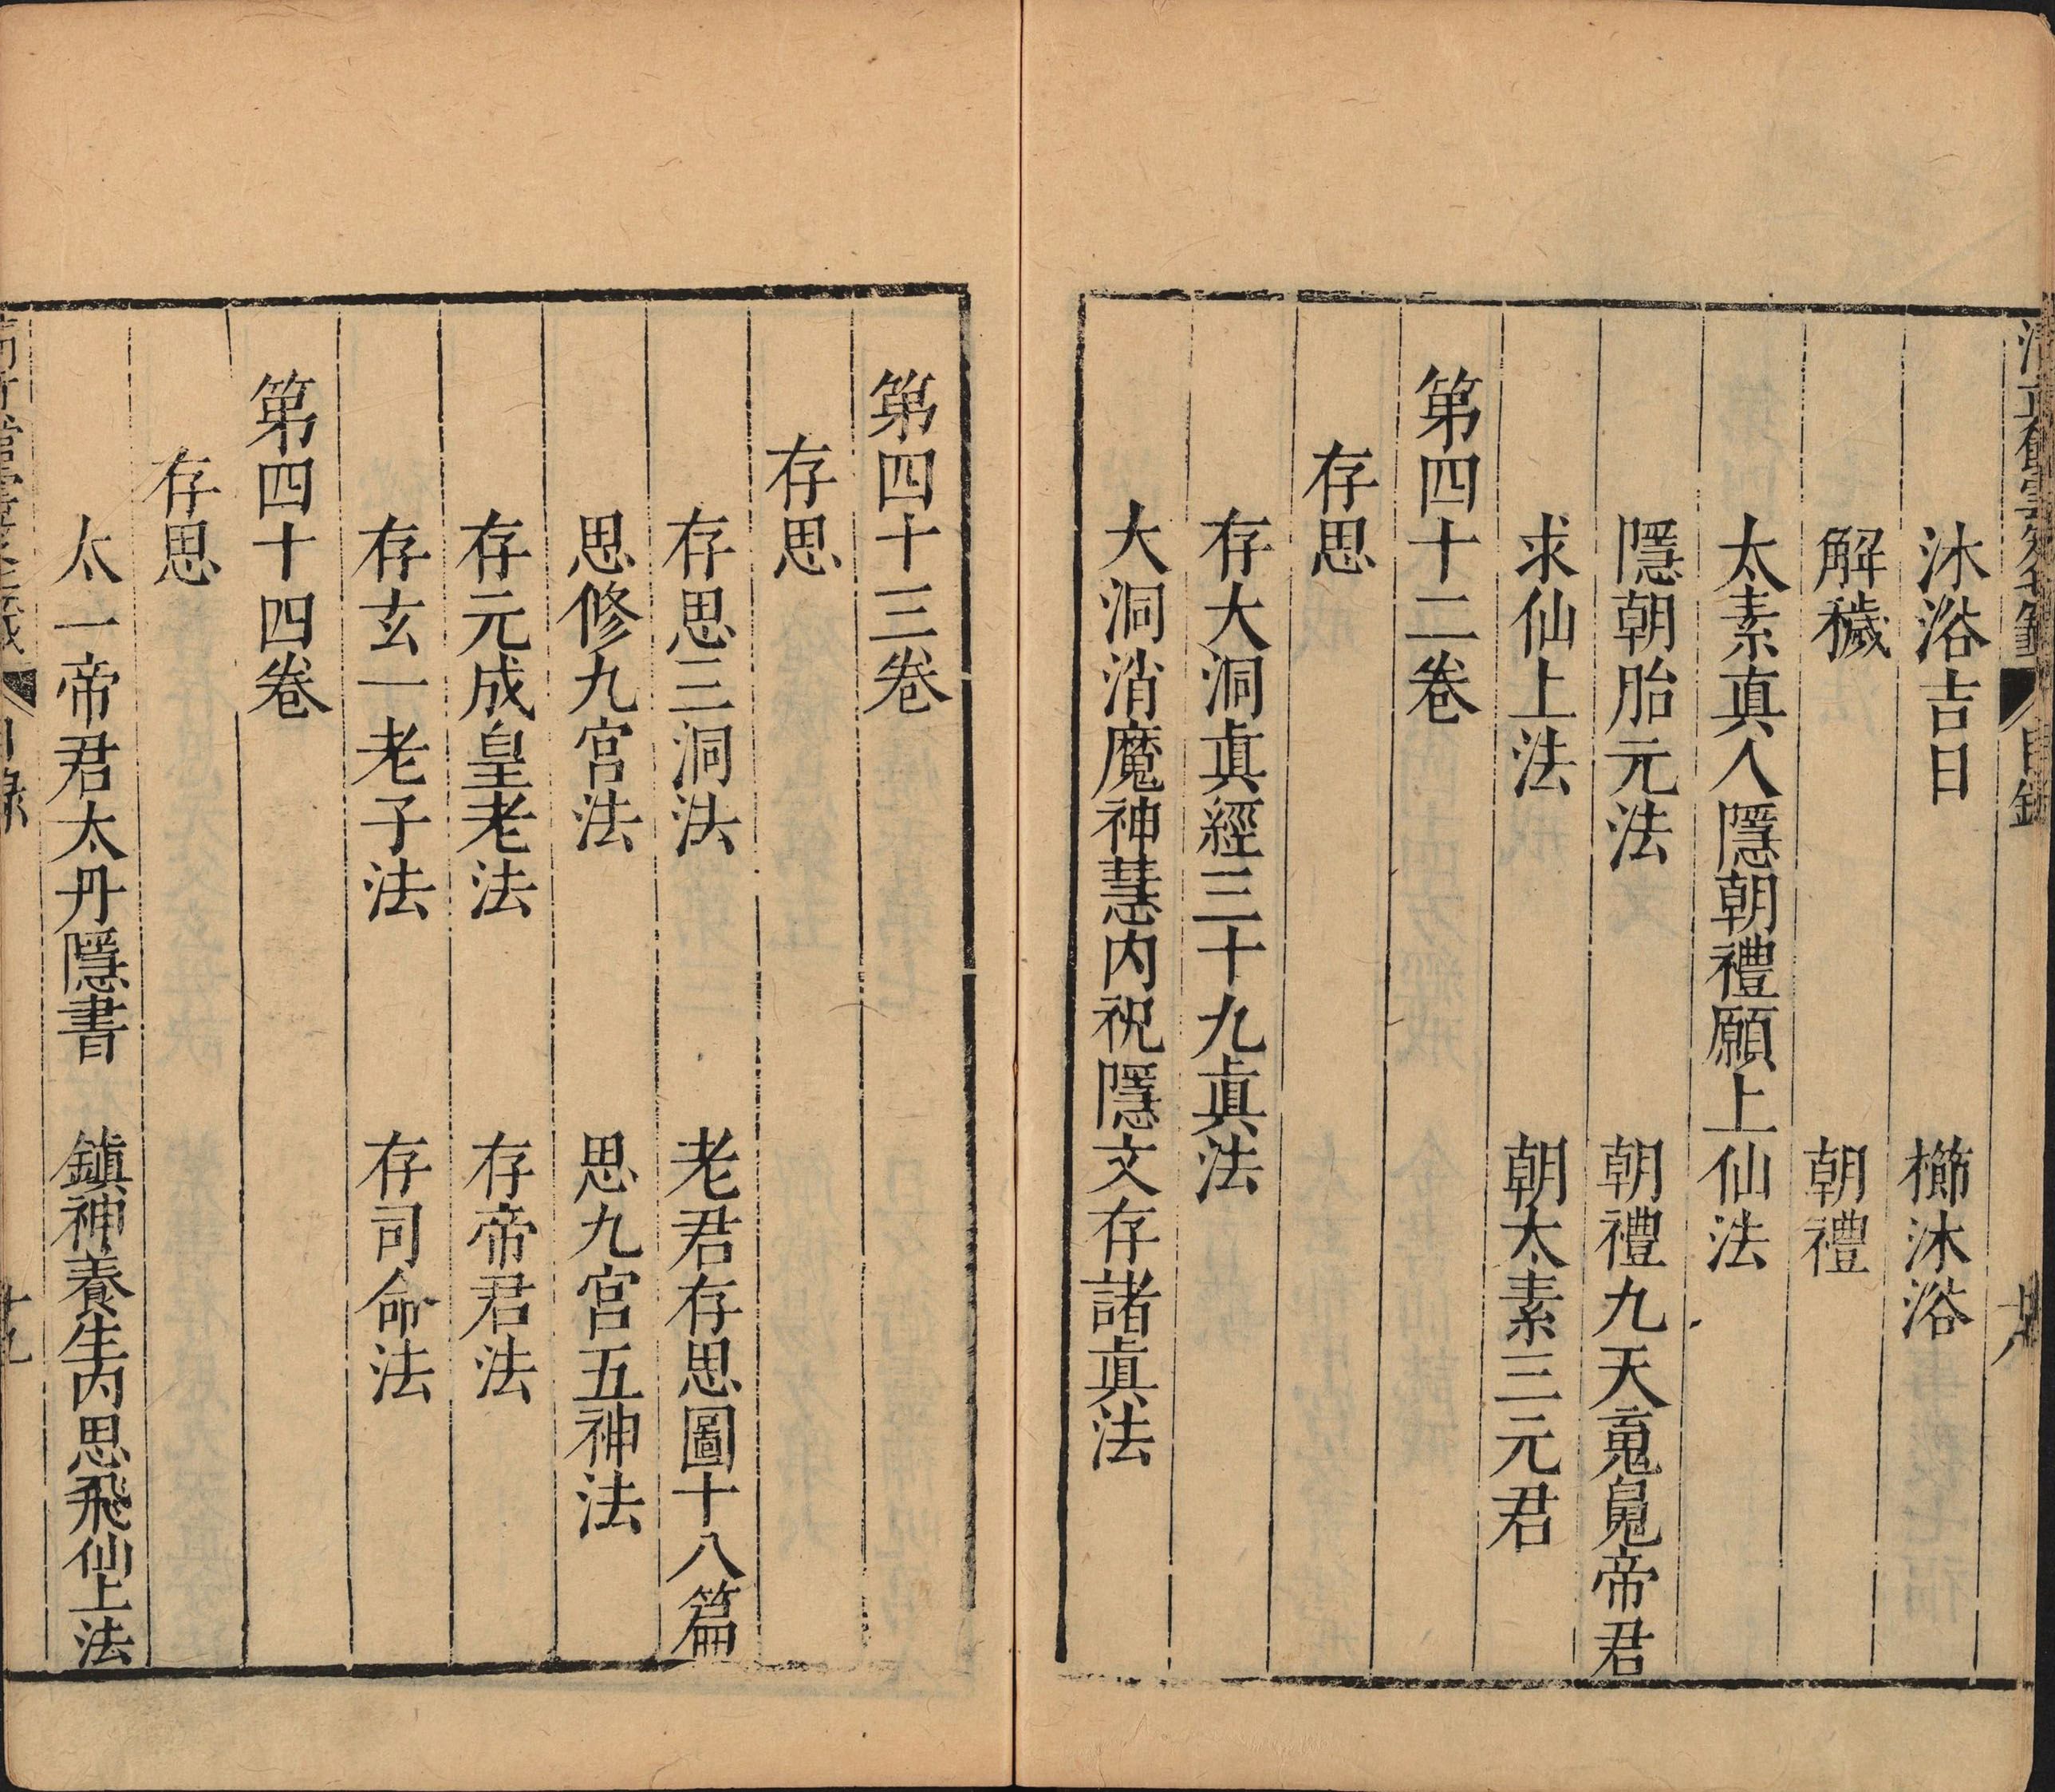 沐浴吉日　櫛沐浴
解穢　朝禮
太素真人隱朝禮願上仙法
隱朝胎元法　朝禮九天䰟魄帝君
求仙上法　朝太素三元君
第四十二卷
存思
存大洞眞經三十九眞法
大洞消魔神慧内祝隱文存諸眞法
第四十三卷
存思
存思三洞法　老君存思圖十八篇
思修九宮法　思九宮五神法
存元成皇老法　存帝君法
存玄一老子法　存司命法
第四十四卷
存思
太一帝君太丹隱書　鎮神養生内思飛仙上法
目錄